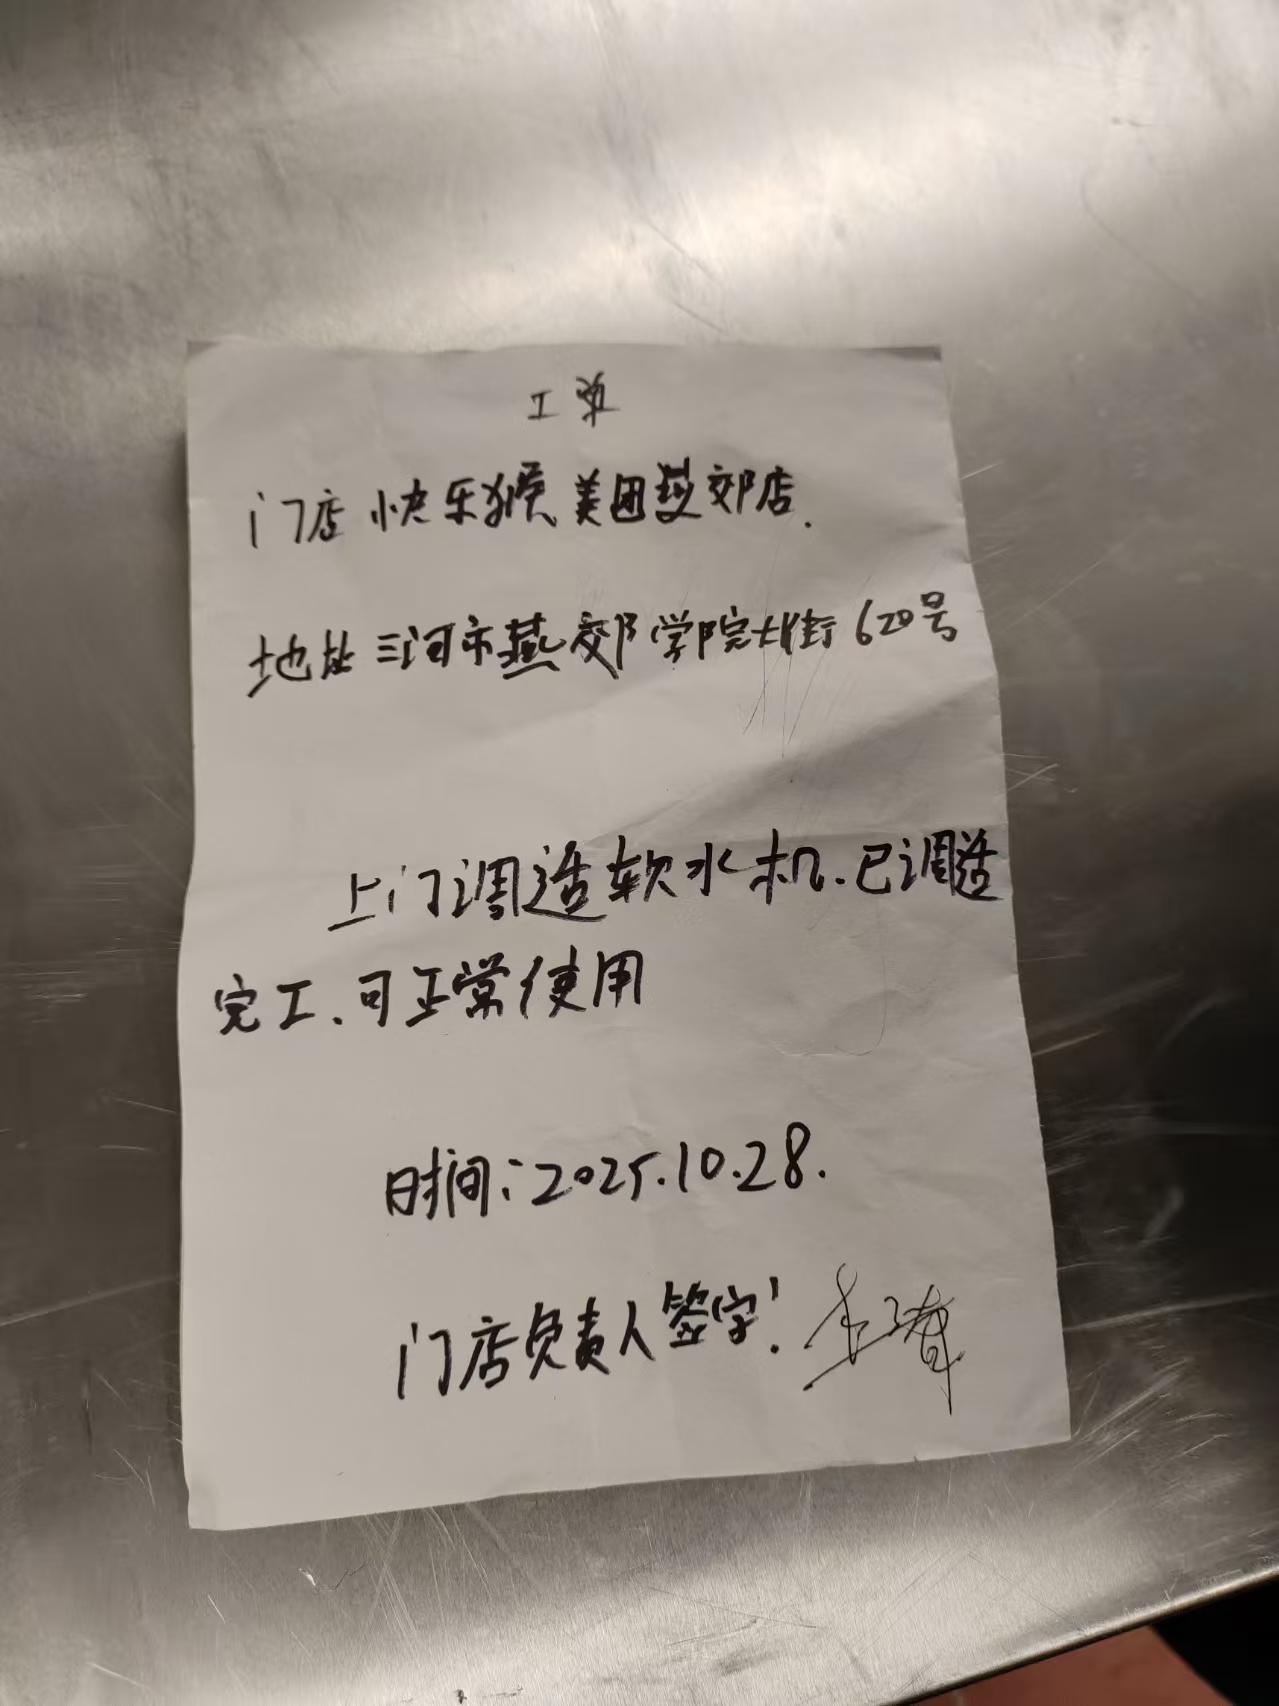 工单
门店 快乐猴 美团燕郊店.
地址 三河市燕郊学院大街620号
上门调适软水机.已调适
完工.可正常使用
时间:2025.10.28.
门店负责人签字: